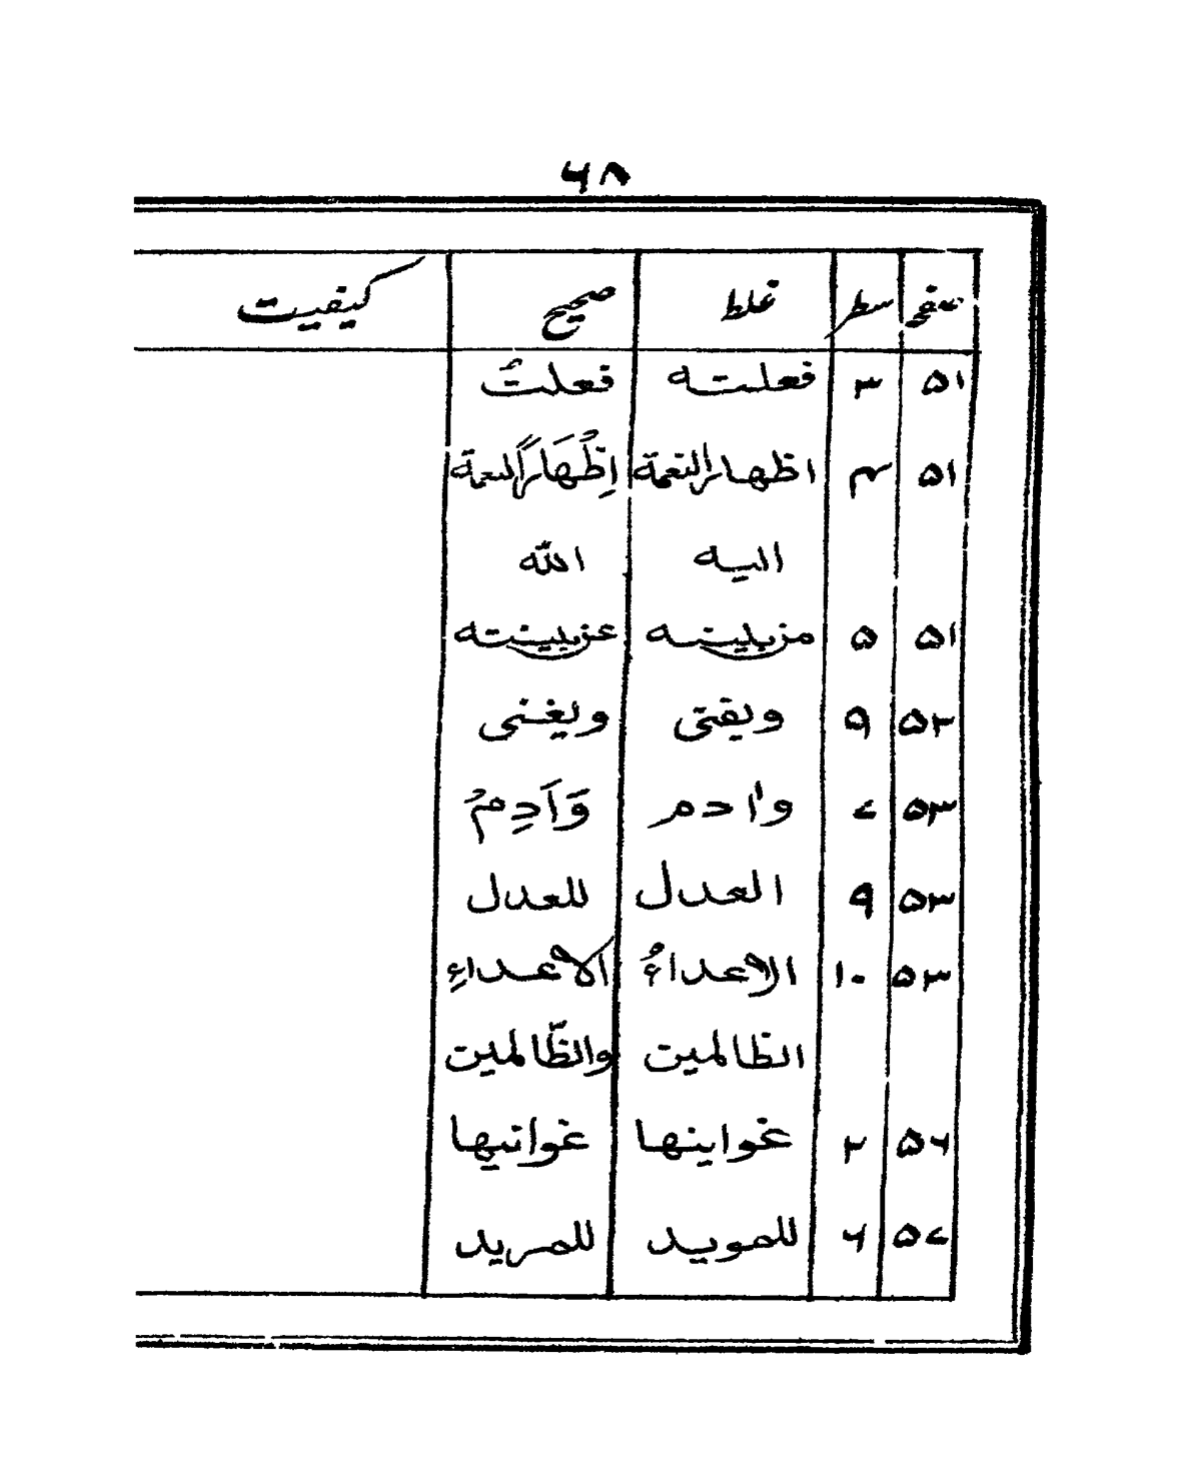 ۶۸
صفحہ سطر غلط صحیح کیفیت
۵۱ ۳ فعلتہ فعلتُ
۵۱ ۴ اظهار النعمة اِظْهَاراً لنعمة
الیه الله
۵۱ ۵ مزبلیته عزیینته
۵۲ ۹ ویقتی ویغنی
۵۳ ۷ وادم وَاَدِمْ
۵۳ ۹ العدل للعدل
۵۳ ۱۰ الاعداءُ الاعداءِ
الظالمین والظّالمین
۵۶ ۲ غواینها غوانیها
۵۷ ۶ للموید للمرید